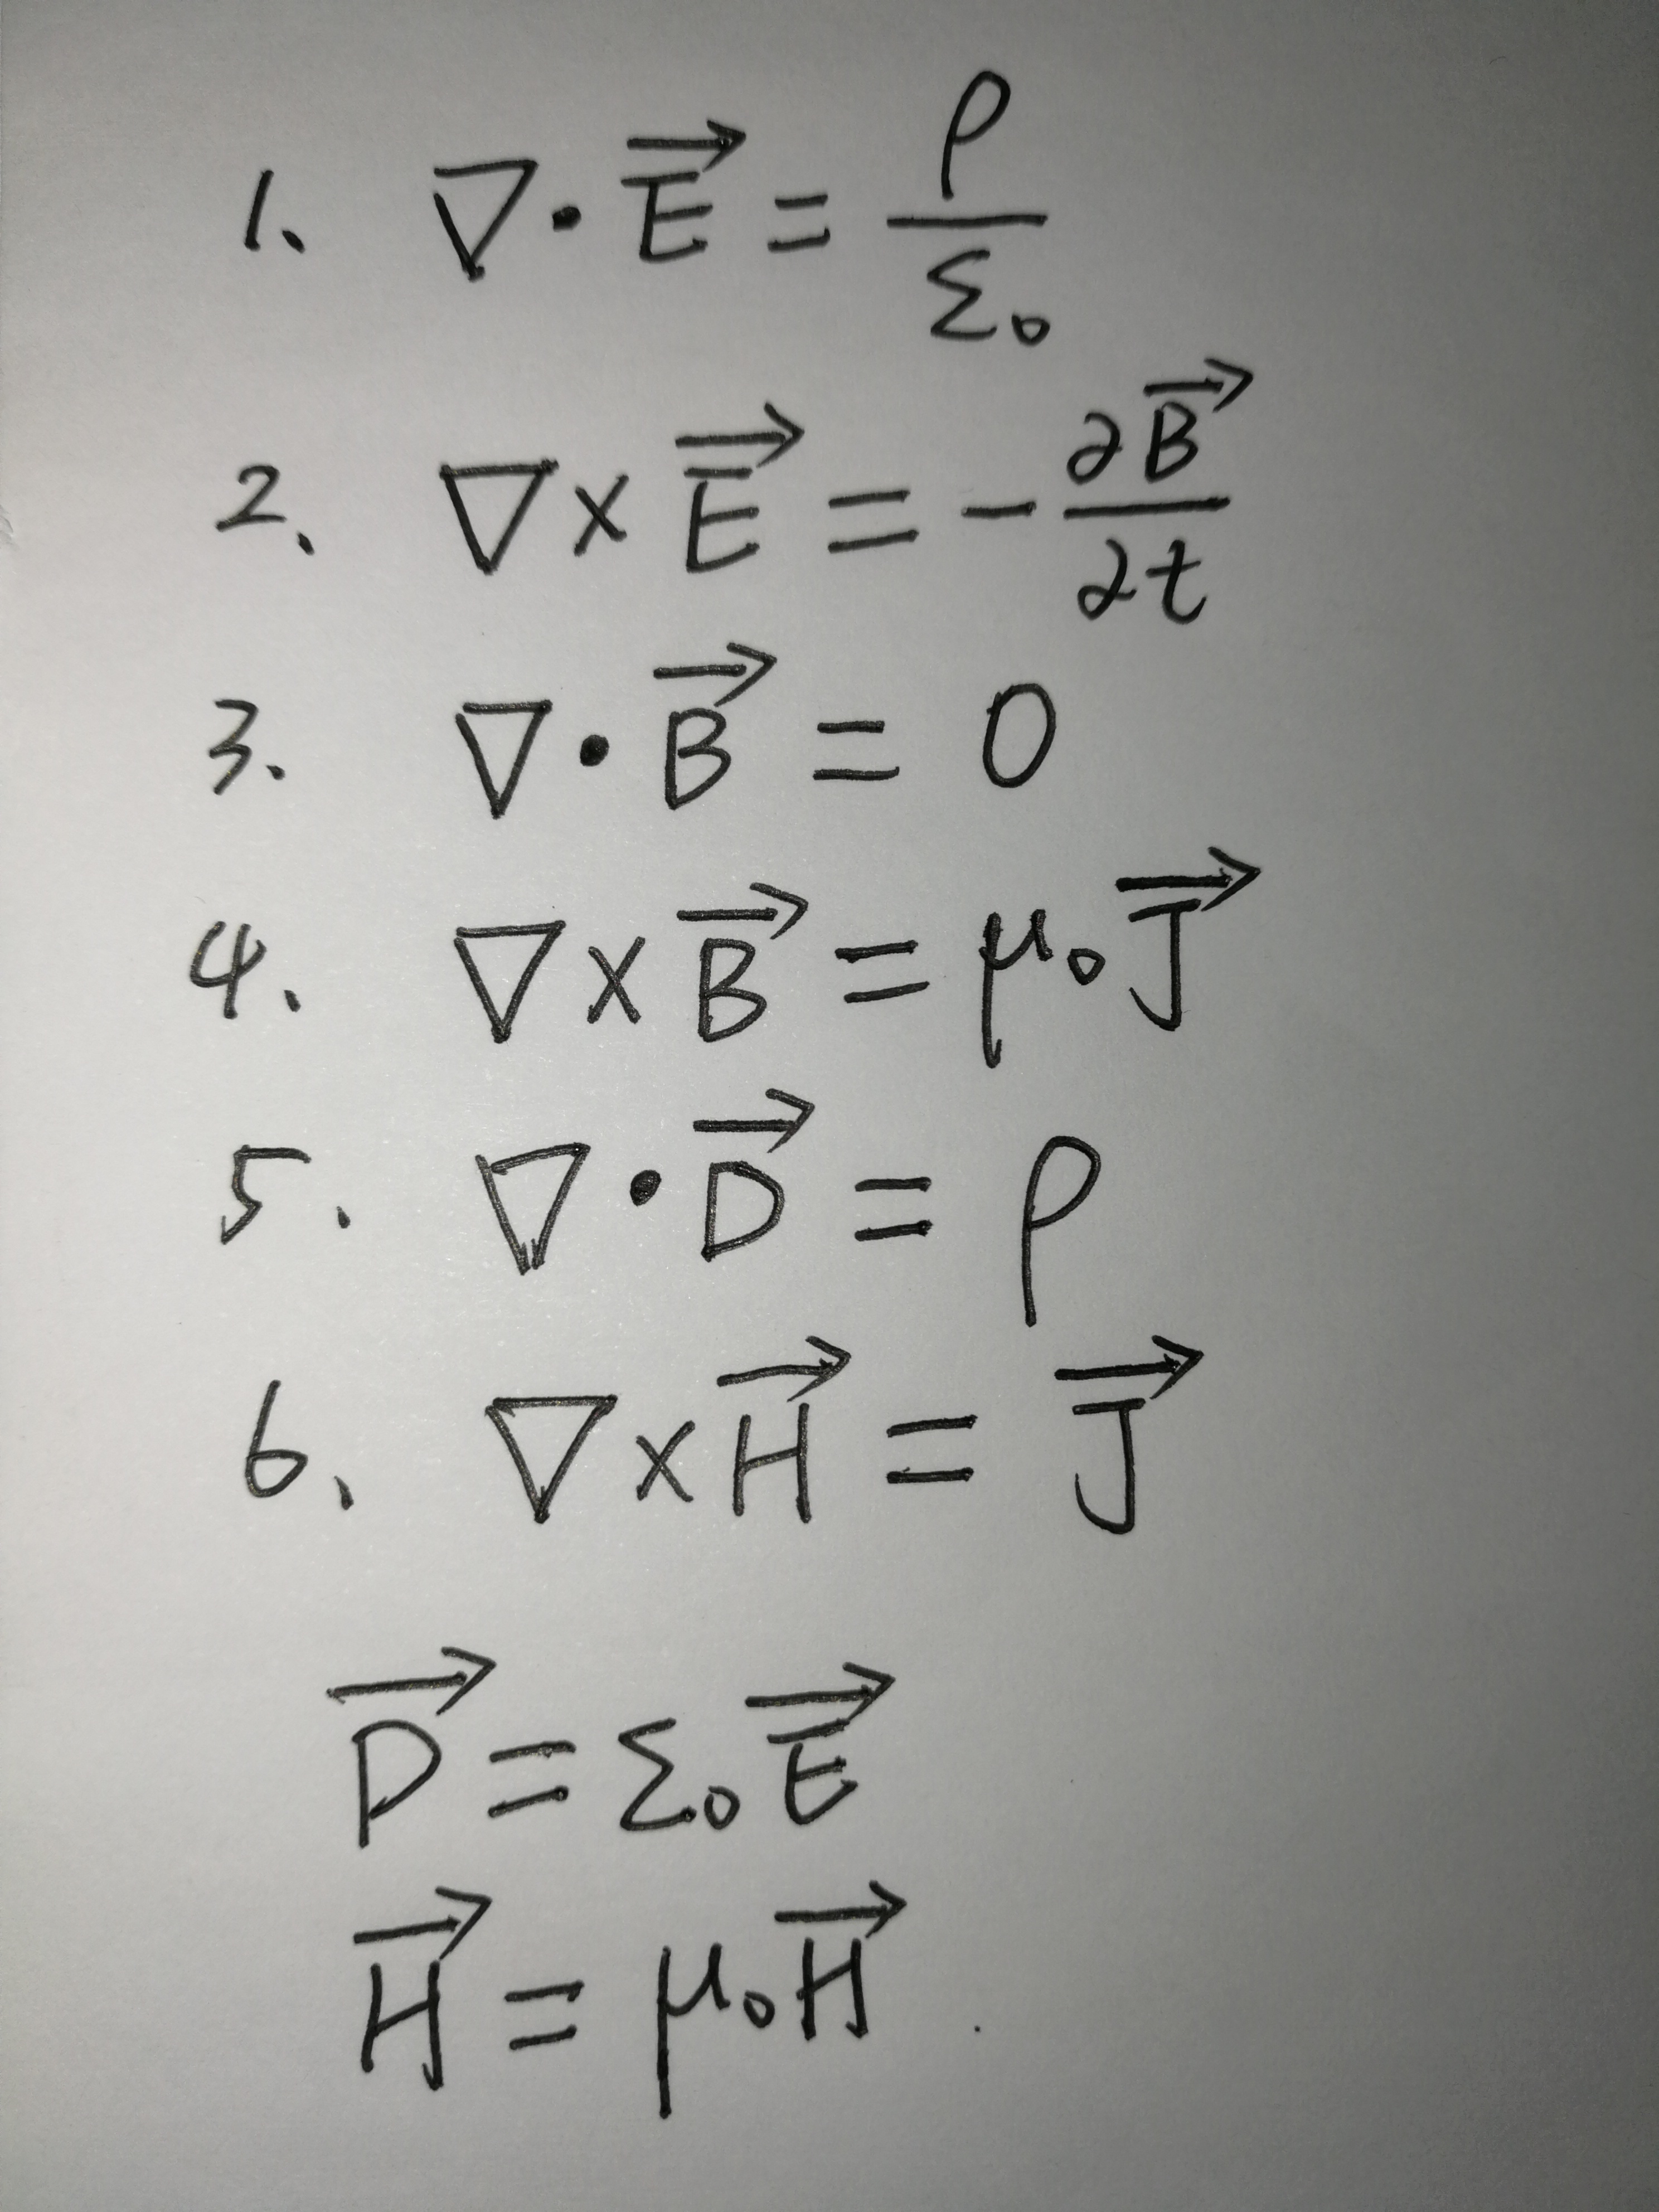 1. ∇·E⃗ = ρ/ε₀
2. ∇×E⃗ = -∂B⃗/∂t
3. ∇·B⃗ = 0
4. ∇×B⃗ = μ₀J⃗
5. ∇·D⃗ = ρ
6. ∇×H⃗ = J⃗
D⃗ = ε₀E⃗
H⃗ = μ₀H⃗